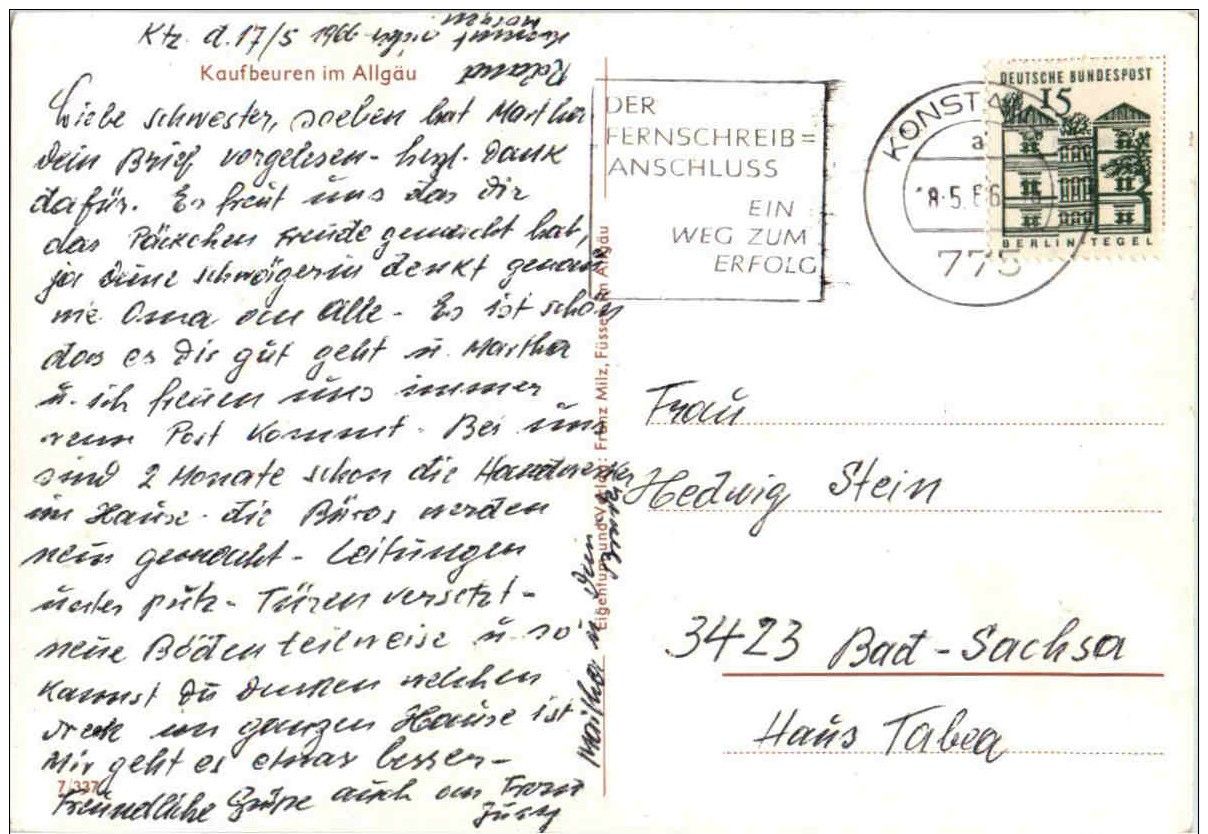 Ktz. d. 17/5 1966
kommt morgen
Roland
Kaufbeuren im Allgäu
Liebe Schwester, soeben hat Martha
Dein Brief vorgelesen - herzl. Dank
dafür. Es freut uns das Dir
das Päckchen Freude gemacht hat,
ja Deine Schwägerin denkt genau
wie Oma an Alle - Es ist schön
das es Dir gut geht u. Martha
u. ich freuen uns immer
wenn Post kommt. Bei uns
sind 2 Monate schon die Handwerker
im Hause. die Büros werden
neu gemacht - Leitungen
unter putz - Türen versetzt -
neue Böden teilweise u. so
kannst Du Denken welchen
Dreck im ganzen Hause ist
Mir geht es etwas besser -
Freundliche Grüße auch an Frau
Martha u. Dein
Bruder
7/337
Eigentum und Verlag: Franz Milz, Füssen im Allgäu
DER
FERNSCHREIB=
ANSCHLUSS
EIN
WEG ZUM
ERFOLG
KONSTA
a
18.5.66
775
DEUTSCHE BUNDESPOST
15
BERLIN-TEGEL
Frau
Hedwig Stein
3423 Bad-Sachsa
Haus Tabea